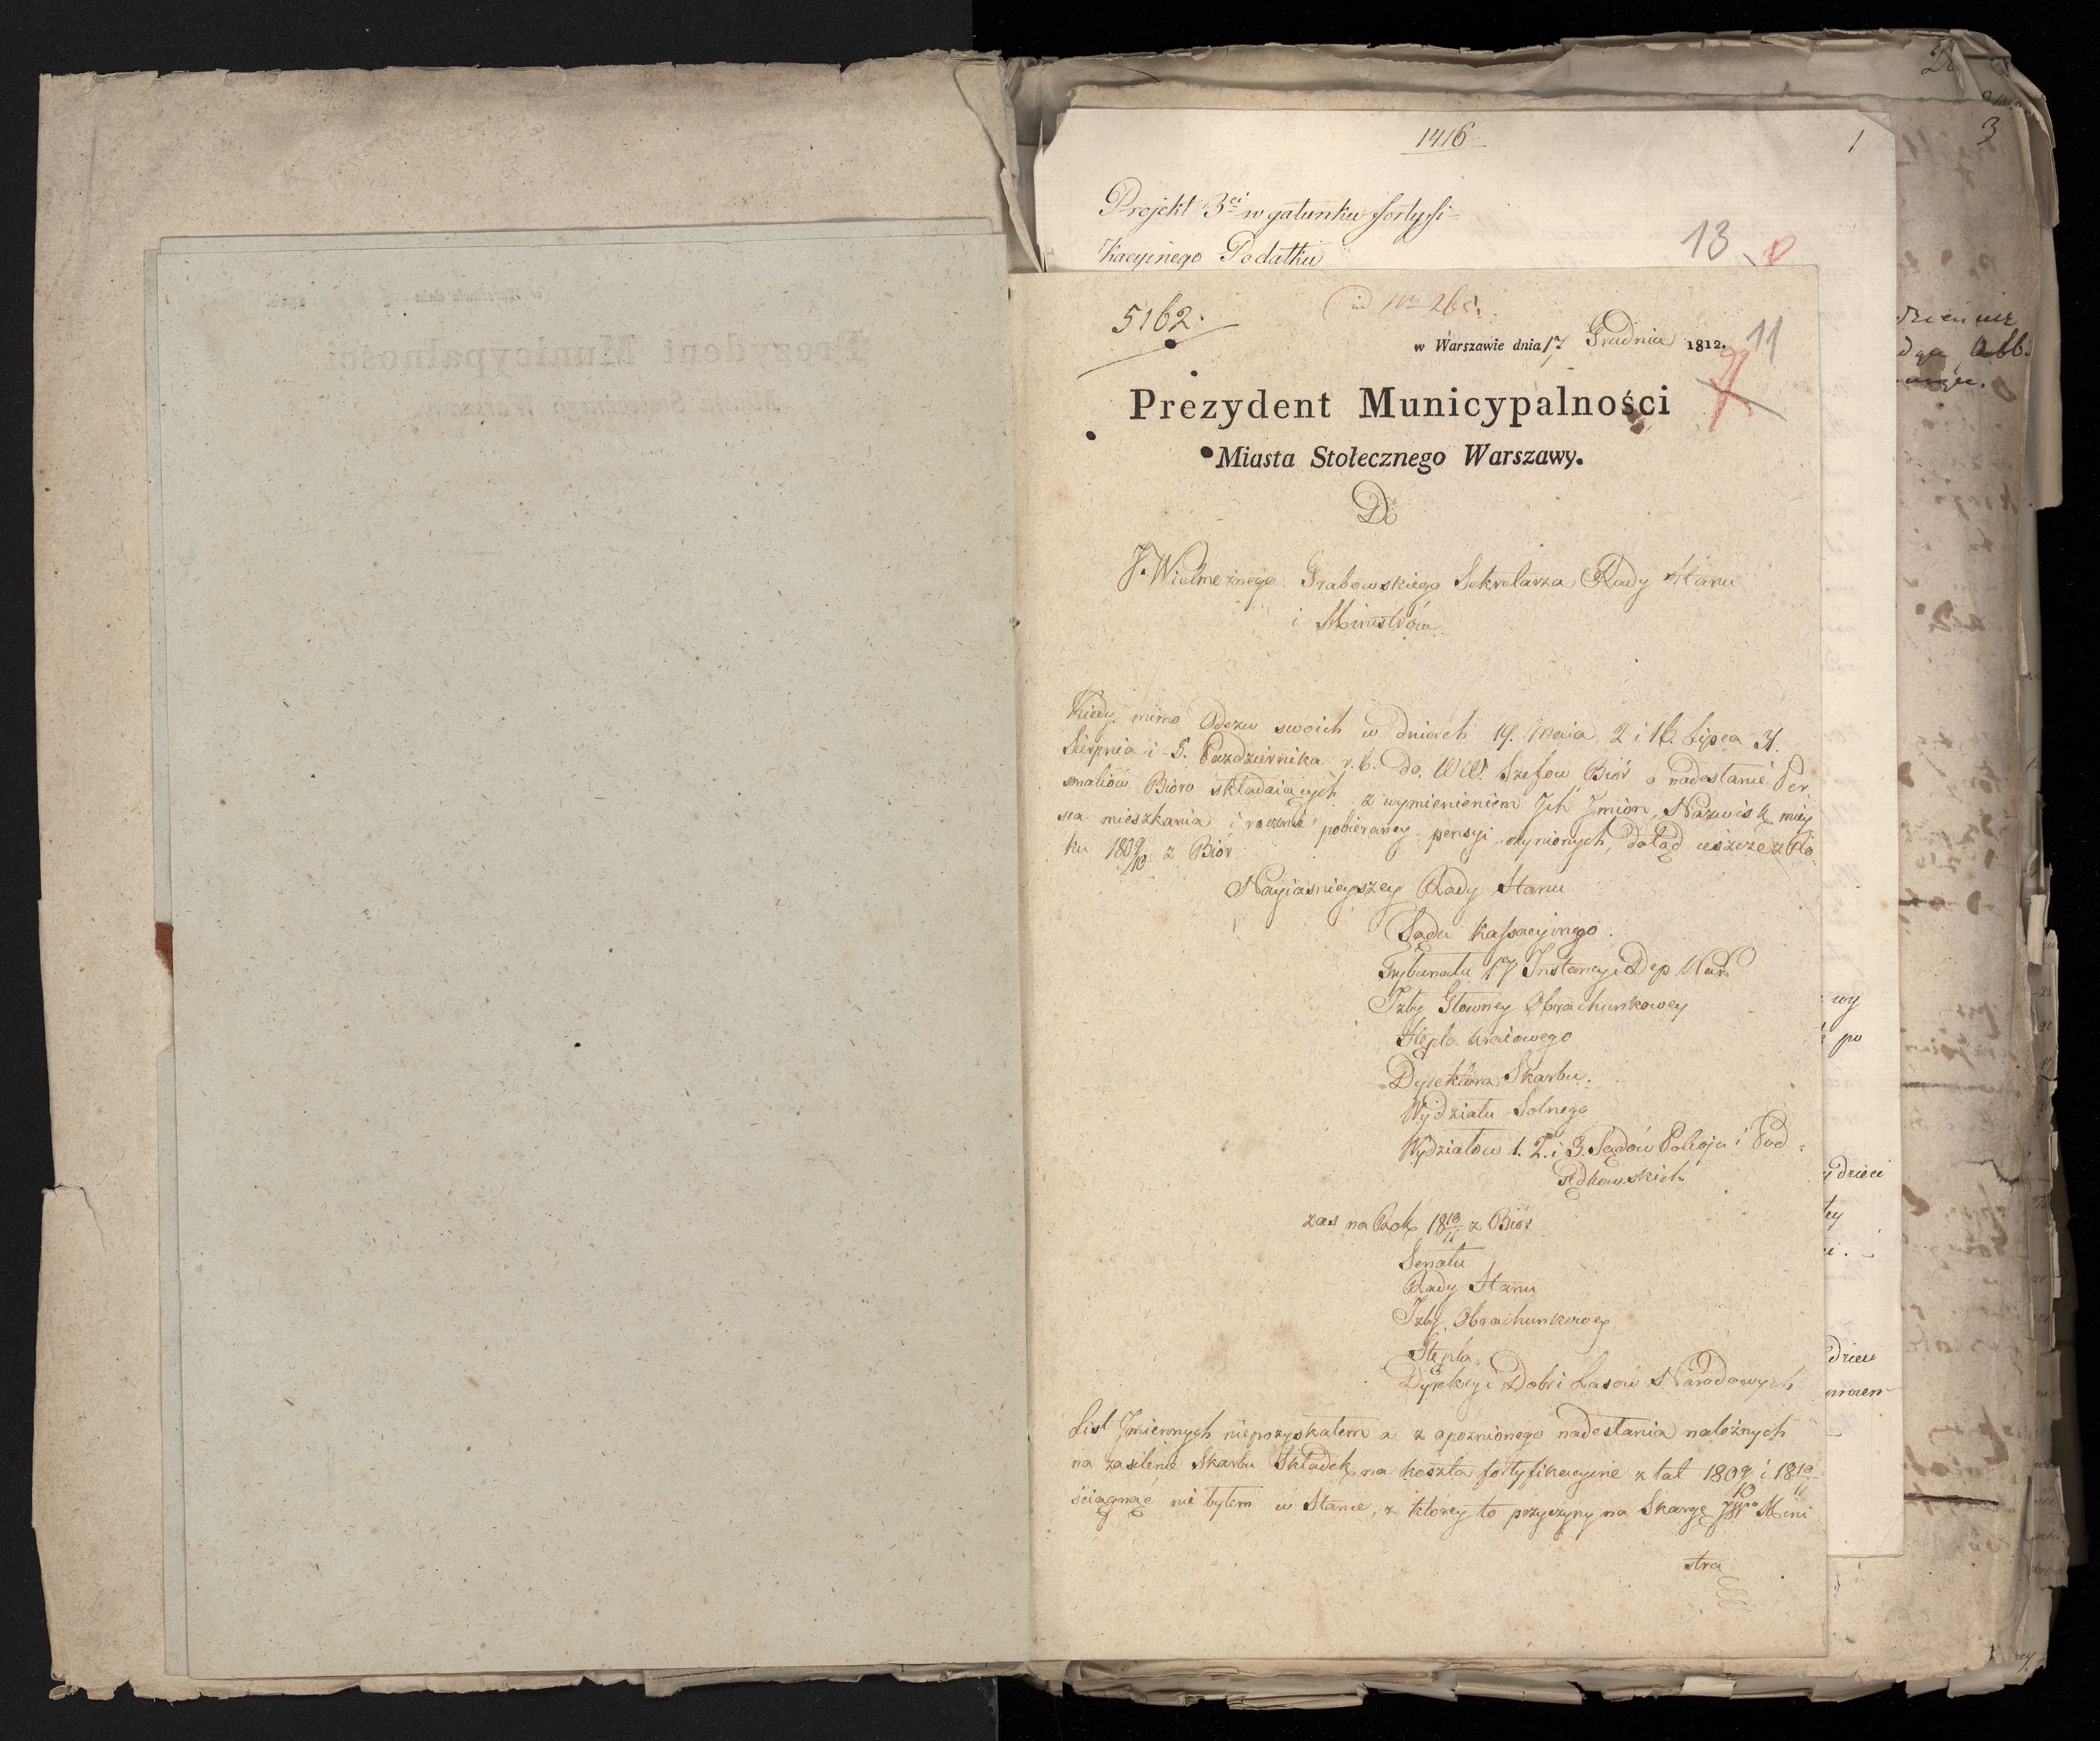 1416
1
3
Projekt 3ci w gatunku fortyfi-
kacyinego Podatku
13
5162.
ad Nro 265.
w Warszawie dnia 17 Grudnia 1812.
11
Prezydent Municypalności
Miasta Stołecznego Warszawy.
Do
J. Wielmożnego Grabowskiego Sekretarza Rady Stanu
i Ministrów
Kiedy mimo Odezw swoich w dniach 19. Maia 2 i 16. Lipca 31.
Sierpnia i 5. Pazdziernika r. b. do WW. Szefow Biór o nadesłanie Per
sonaliów Bióro składaiących z wymienieniem Jch Jmion, Nazwisk, miey
sca mieszkania i rocznie pobieraney pensyi, czynionych, dotąd ieszcze z Ro
ku 1809/10 z Biór
Nayiasnieyszey Rady Stanu
Sądu Kassacyinego.
Trybunału 1ey Instancyi Dep. Warś
Izby Głowney Obrachunkowey
Stępla kraiowego
Dyrektora Skarbu.
Wydziału Solnego
Wydziałow 1. 2. i 3. Sądów Pokoju i Pod-
sędkowskich
zas na Rok 1810/11 z Biór
Senatu
Rady Stanu
Izby Obrachunkowey
Stępla
Dyrekcyi Dobr i Lasow Narodowych
List Jmiennych niepozyskałem a z opoznionego nadesłania należnych
na zasilenie Skarbu Składek na koszta fortyfikacyine z lat 1809/10 i 1810/11
ściągnąć nie byłem w Stanie, z ktorey to przyczyny na Skargę JW° Mini
stra
wy
po
dzieci